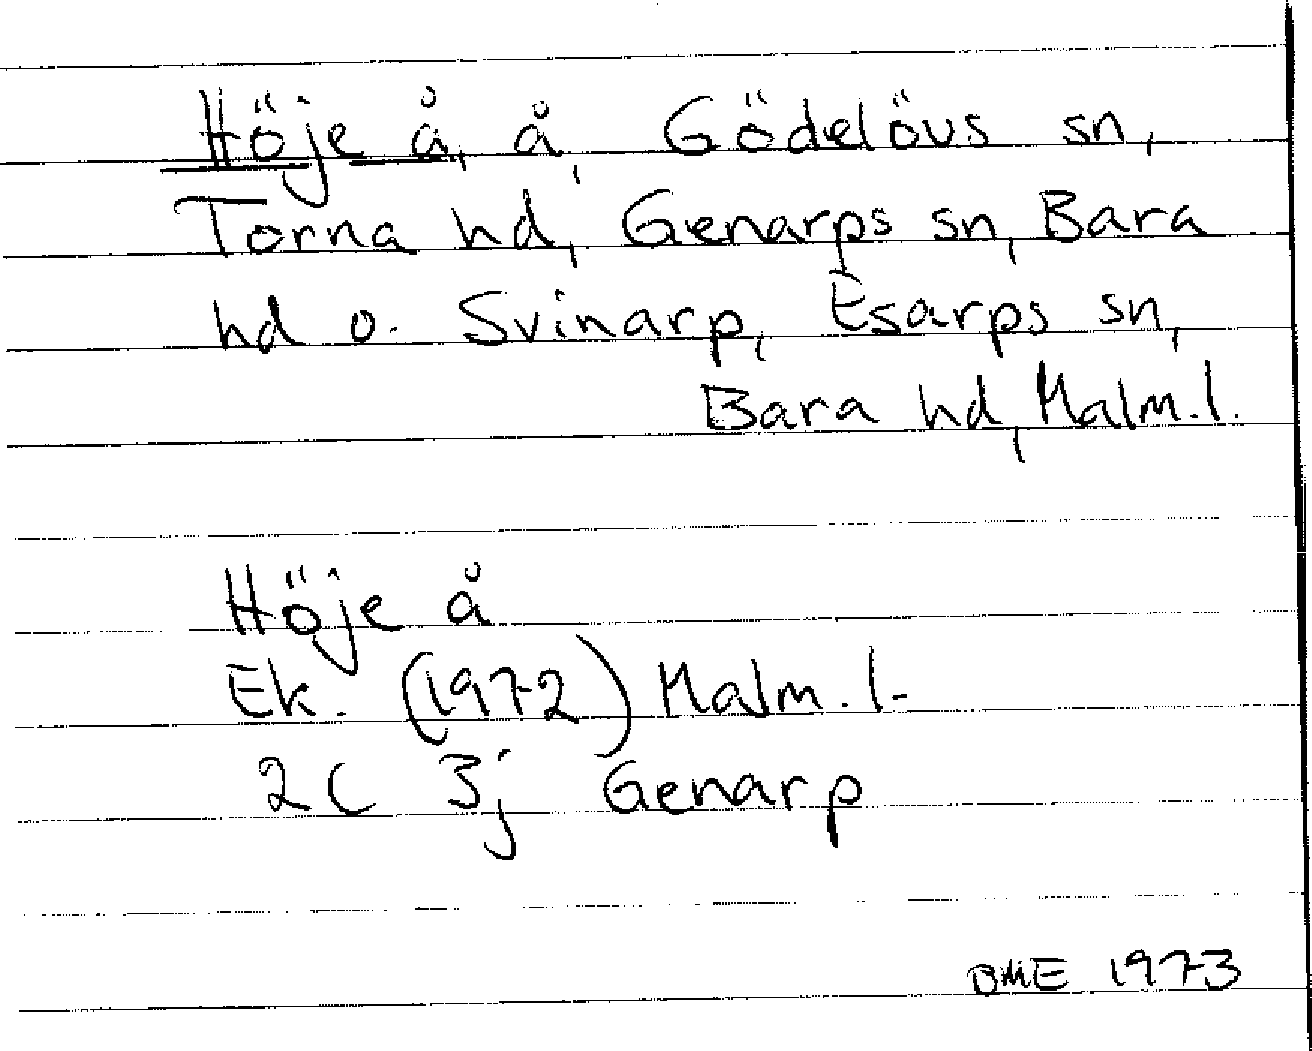 Höje å, å, Gödelövs sn,
Torna hd, Genarps sn, Bara
hd o. Svinarp, Esarps sn,
Bara hd, Malm.l.
Höje å
Ek. (1972) Malm. l.
2C 3j Genarp
BME 1973